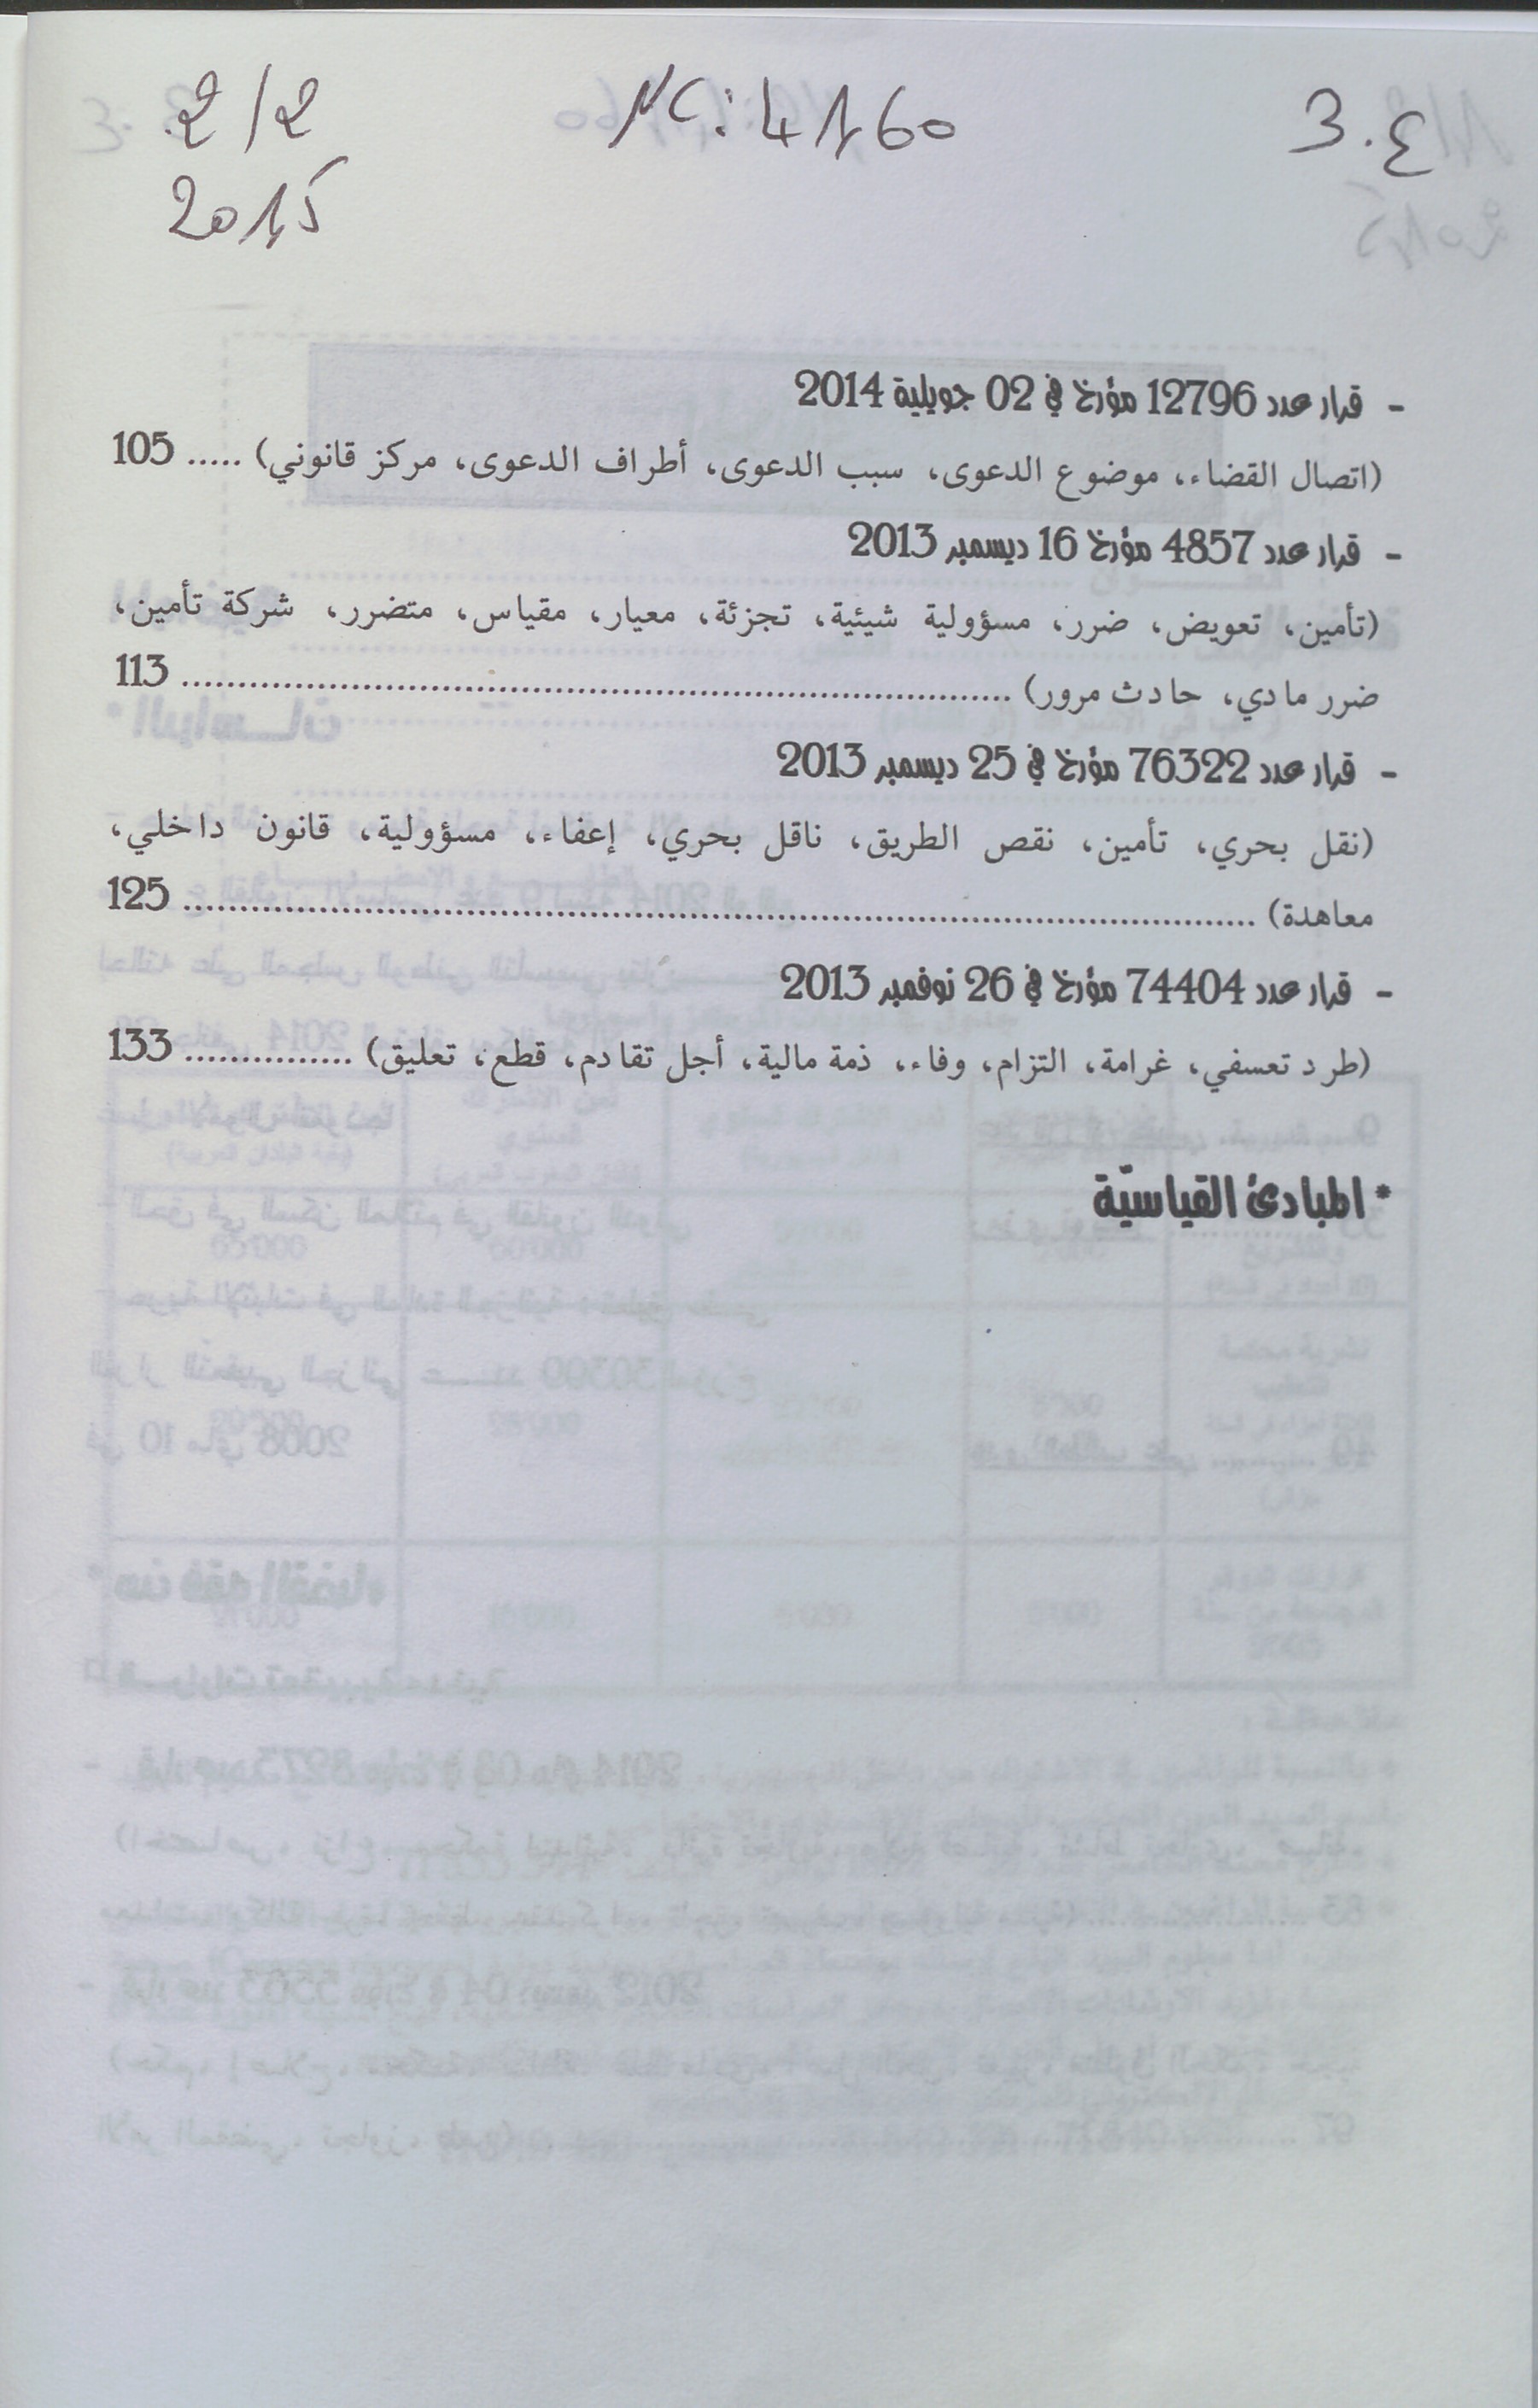 2/2
2015
NC: 4160
3.ع
- قرار عدد 12796 مؤرخ في 02 جويلية 2014
(اتصال القضاء، موضوع الدعوى، سبب الدعوى، أطراف الدعوى، مركز قانوني) ..... 105
- قرار عدد 4857 مؤرخ 16 ديسمبر 2013
(تأمين، تعويض، ضرر، مسؤولية شيئية، تجزئة، معيار، مقياس، متضرر، شركة تأمين،
ضرر مادي، حادث مرور) .......................................................................... 113
- قرار عدد 76322 مؤرخ في 25 ديسمبر 2013
(نقل بحري، تأمين، نقص الطريق، ناقل بحري، إعفاء، مسؤولية، قانون داخلي،
معاهدة) ................................................................................................ 125
- قرار عدد 74404 مؤرخ في 26 نوفمبر 2013
(طرد تعسفي، غرامة، التزام، وفاء، ذمة مالية، أجل تقادم، قطع، تعليق) ............... 133
* المبادئ القياسيّة